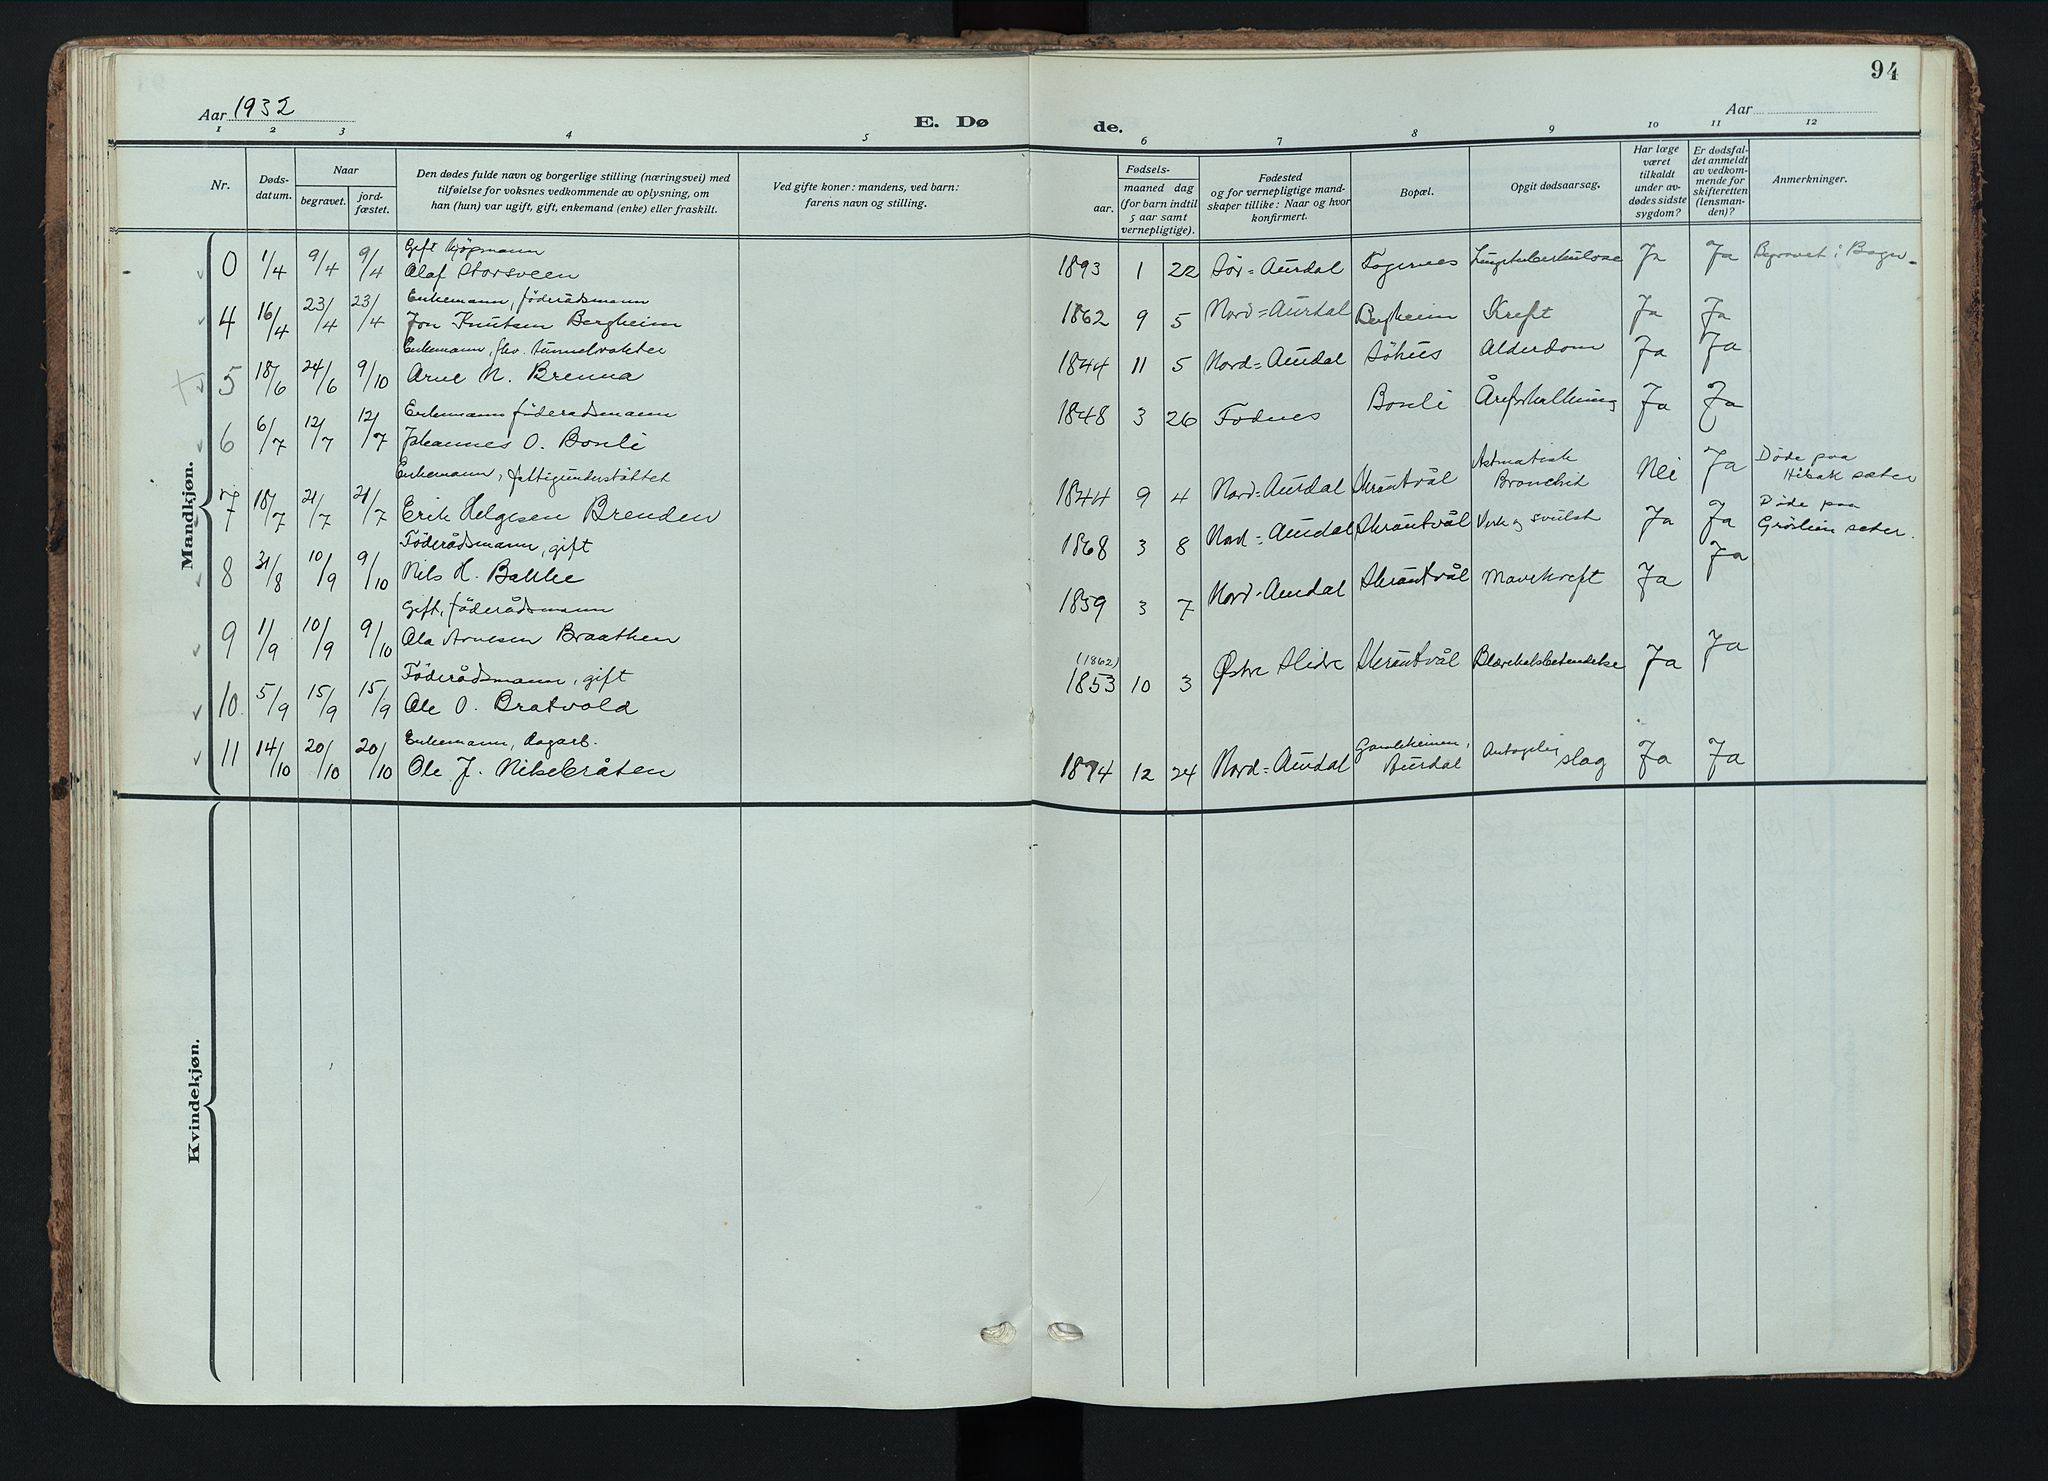 94
Aar 1932
E. Dø
de.
Aar
1 2 3 4 5 6 7 8 9 10 11 12
Nr.
Døds-
datum.
Naar
begravet.
jord-
fæstet.
Den dødes fulde navn og borgerlige stilling (næringsvei) med
tilføielse for voksnes vedkommende av oplysning, om
han (hun) var ugift, gift, enkemand (enke) eller fraskilt.
Ved gifte koner: mandens, ved barn:
farens navn og stilling.
Fødsels-
aar.
maaned dag
(for barn indtil
5 aar samt
vernepligtige).
Fødested
og for vernepligtige mand-
skaper tillike: Naar og hvor
konfirmert.
Bopæl.
Opgit dødsaarsag.
Har læge
været
tilkaldt
under av-
dødes sidste
sygdom?
Er dødsfal-
det anmeldt
av vedkom-
mende for
skifteretten
(lensman-
den)?
Anmerkninger.
Mandkjøn.
Gift Kjøpmann
0 1/4 9/4 9/4 Olaf Storsveen 1893 1 22 Sør=Aurdal Fagernes Lungetuberkulose Ja Ja Begravet i Bagn.
Enkemann, föderådsmann
4 16/4 23/4 23/4 Jon Knutsen Bergheim 1862 9 5 Nord=Aurdal Bergheim Kreft Ja Ja
Enkemann, fhv. tunnelvakter
5 18/6 24/6 9/10 Arne N. Brenna 1844 11 5 Nord=Aurdal Söhus Alderdom Ja Ja
Enkemann föderadsmann
6 6/7 12/7 12/7 Johannes O. Bonli 1848 3 26 Fodnes Bonli Åreforkalkning Ja Ja
Enkemann, fattigunderstöttet
7 18/7 21/7 21/7 Erik Helgesen Brenden 1844 9 4 Nord=Aurdal Skrautvål Astmatisk
Bronchit Nei Ja Døde paa
sæter
Föderådsmann, gift
8 31/8 10/9 9/10 Nils H. Bakke 1868 3 8 Nord=Aurdal Skrautvål Verk og svulst Ja Ja Døde paa
Gröslien seter.
Gift, föderådsmann
9 1/9 10/9 9/10 Ola Arnesen Braathen 1859 3 7 Nord=Aurdal Skrautvål Mavekreft Ja Ja
Föderådsmann, gift
10 5/9 15/9 15/9 Ole O. Bratvold (1862)
1853 10 3 Østre Slidre Skrautvål Blærehalsbetendelse Ja Ja
Enkemann, dagarb.
11 14/10 20/10 20/10 Ole J. Nikebråten 1874 12 24 Nord=Aurdal Gamleheimen,
Aurdal Antagelig slag Ja Ja
Kvindekjøn.